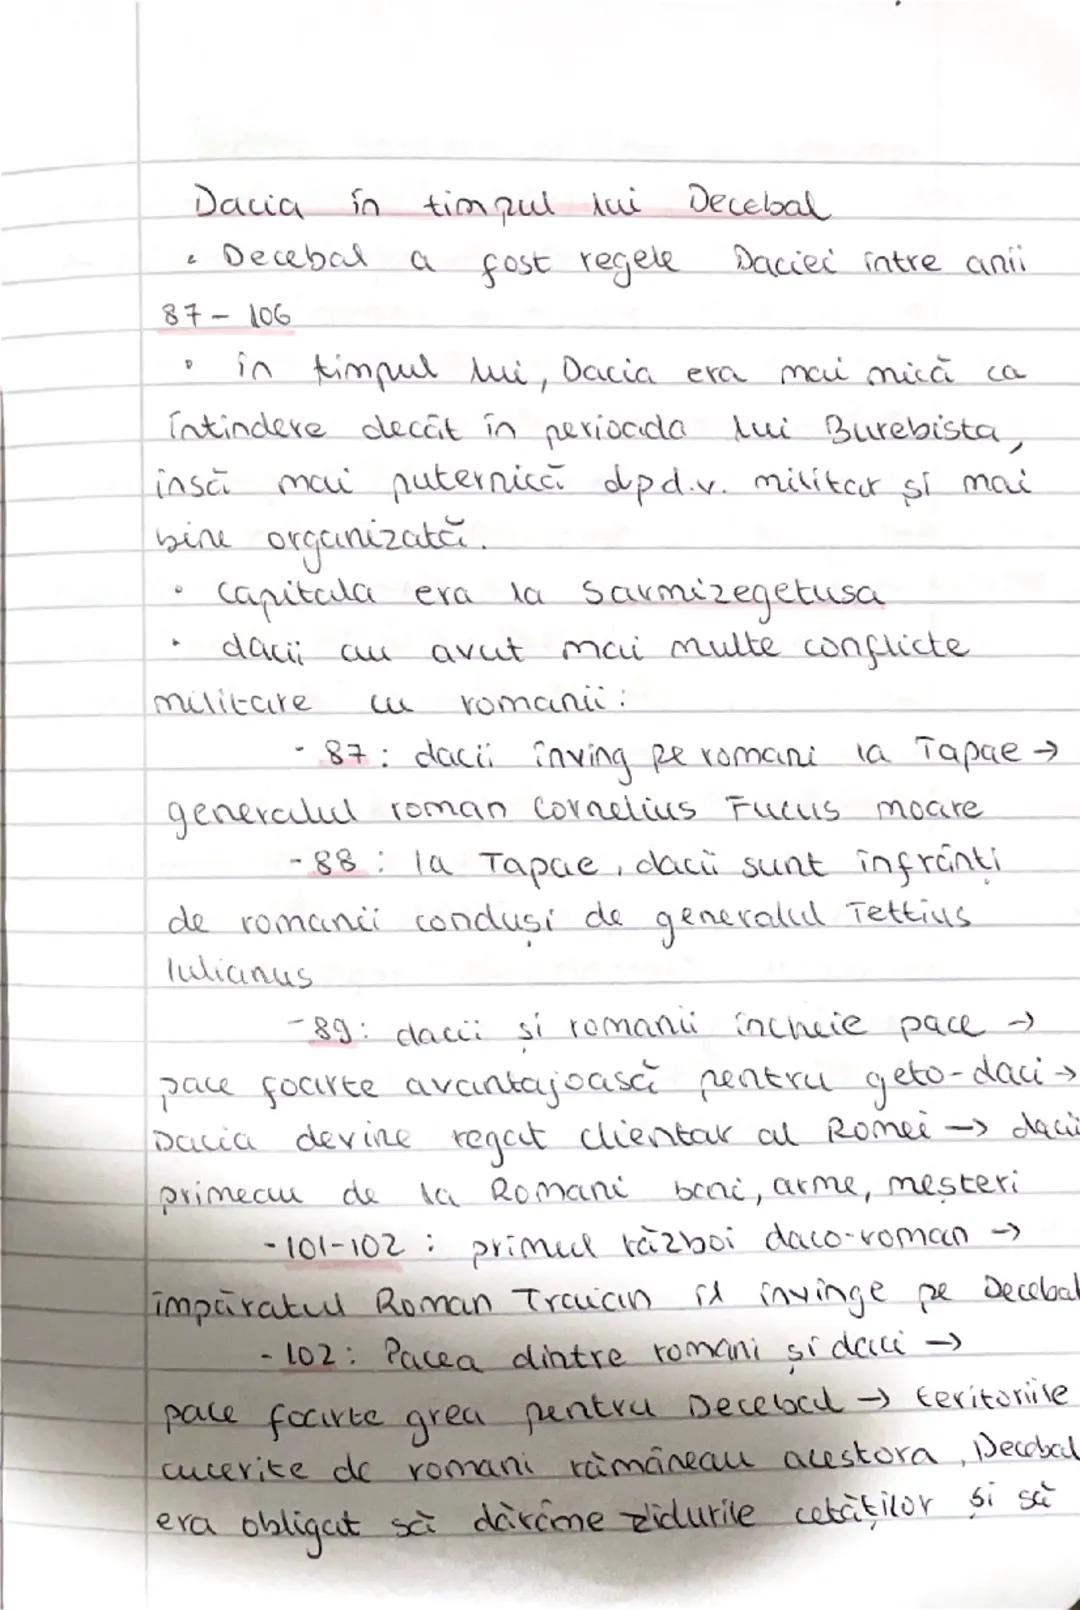 Dacia în timpul lui Decebal
• Decebal a fost regele Daciei între anii
87 - 106
• în timpul lui, Dacia era mai mică ca
întindere decât în perioada lui Burebista,
însă mai puternică dpd.v. militar și mai
bine organizată.
• capitala era la Sarmizegetusa
• dacii au avut mai multe conflicte
militare cu romanii:
- 87: dacii înving pe romani la Tapae →
generalul roman Cornelius Fucus moare
- 88: la Tapae, dacii sunt înfrânți
de romanii conduși de generalul Tettius
Iulianus
- 89: dacii și romanii încheie pace →
pace foarte avantajoasă pentru geto-daci →
Dacia devine regat clientar al Romei → dacii
primeau de la Romani bani, arme, meșteri
- 101-102: primul război daco-roman →
împăratul Roman Traian îl învinge pe Decebal
- 102: Pacea dintre romani și daci →
pace foarte grea pentru Decebal → teritoriile
cucerite de romani rămâneau acestora, Decebal
era obligat să dărâme zidurile cetăților și să